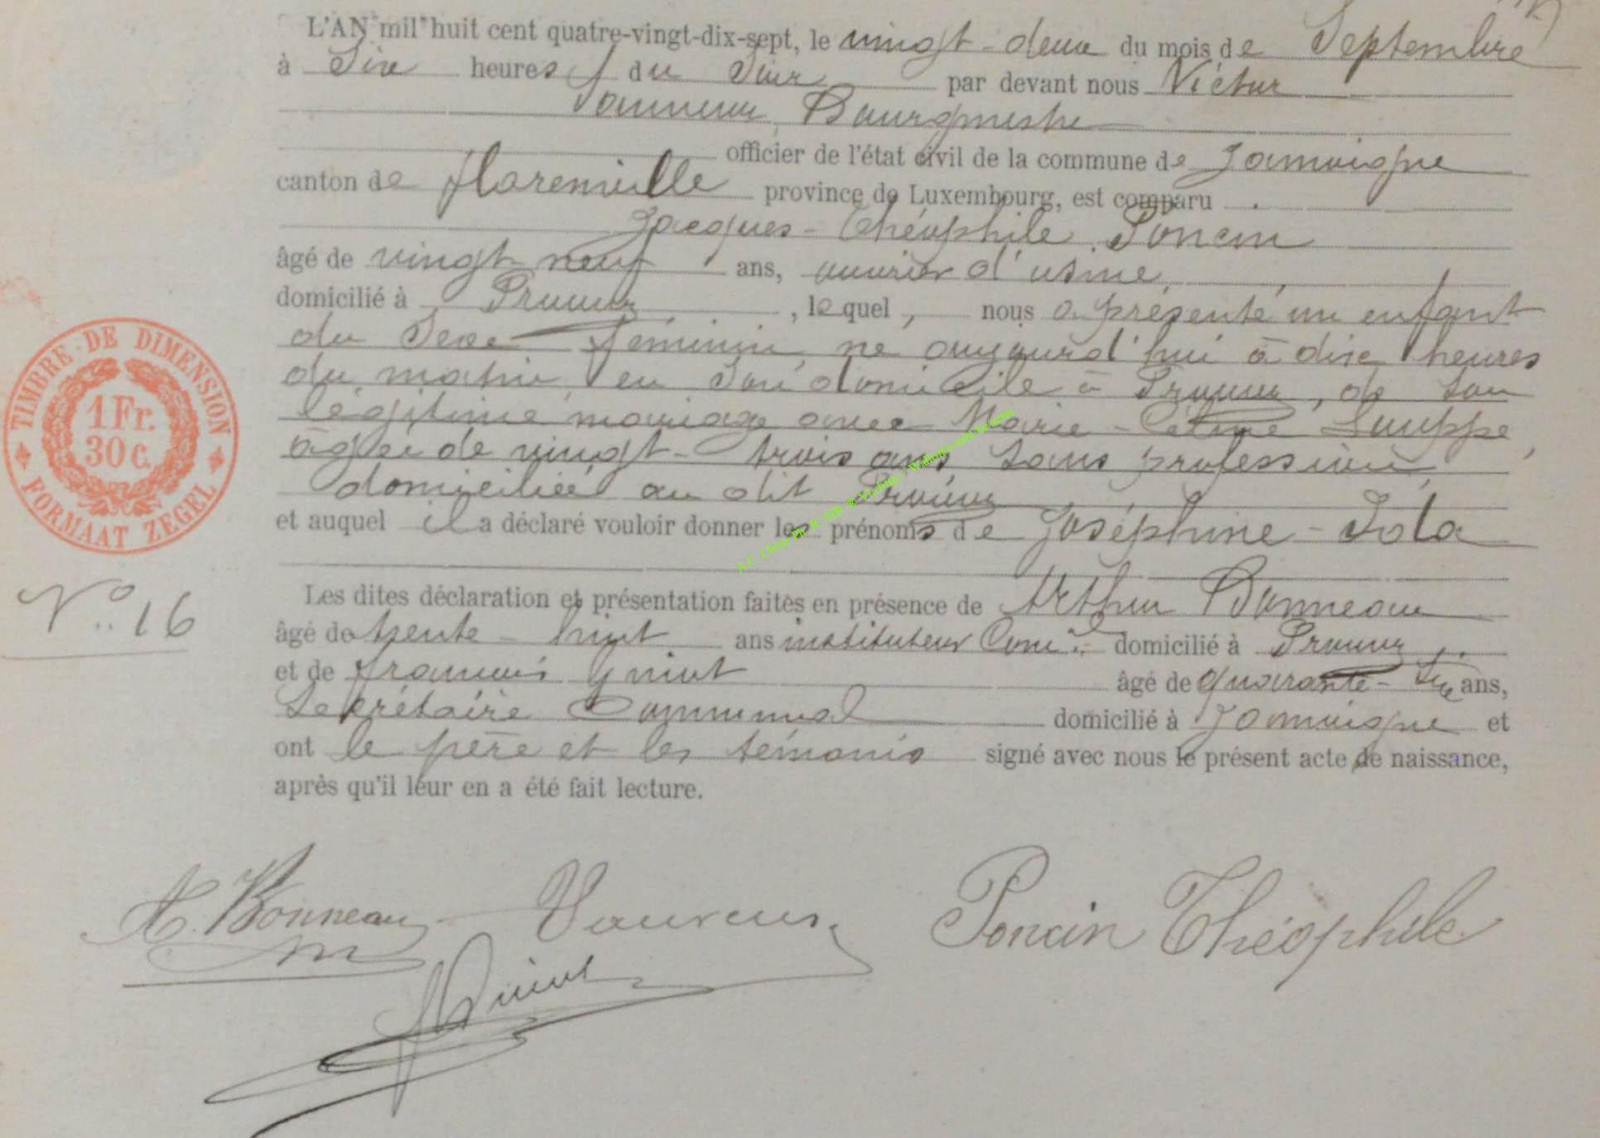 L'AN mil huit cent quatre-vingt-dix-sept, le vingt-deux du mois de Septembre
à Six heures du Soir par devant nous Victor
Bourgmestre
officier de l'état civil de la commune de Jamoigne
canton de Florenville province de Luxembourg, est comparu
Jacques-Théophile Poncin
âgé de vingt neuf ans, ouvrier d'usine,
domicilié à Prouvy, lequel, nous a présenté un enfant
du Sexe féminin, né aujourd'hui à dix heures
du matin en Son domicile à Prouvy, de Son
légitime mariage avec Marie-Céline Suppe,
âgée de vingt-trois ans, Sans profession,
domiciliée au dit Prouvy
et auquel il a déclaré vouloir donner les prénoms de Joséphine-Iola
Les dites déclaration et présentation faites en présence de Arthur Bonneau
âgé de trente-huit ans instituteur Com.al domicilié à Prouvy
et de françois Guiot âgé de quarante-Six ans,
Secrétaire Communal domicilié à Jamoigne et
ont le père et les témoins signé avec nous le présent acte de naissance,
après qu'il leur en a été fait lecture.
TIMBRE DE DIMENSION
1 Fr.
30 C.
FORMAAT ZEGEL
N° 16
A. Bonneau
Poncin Théophile